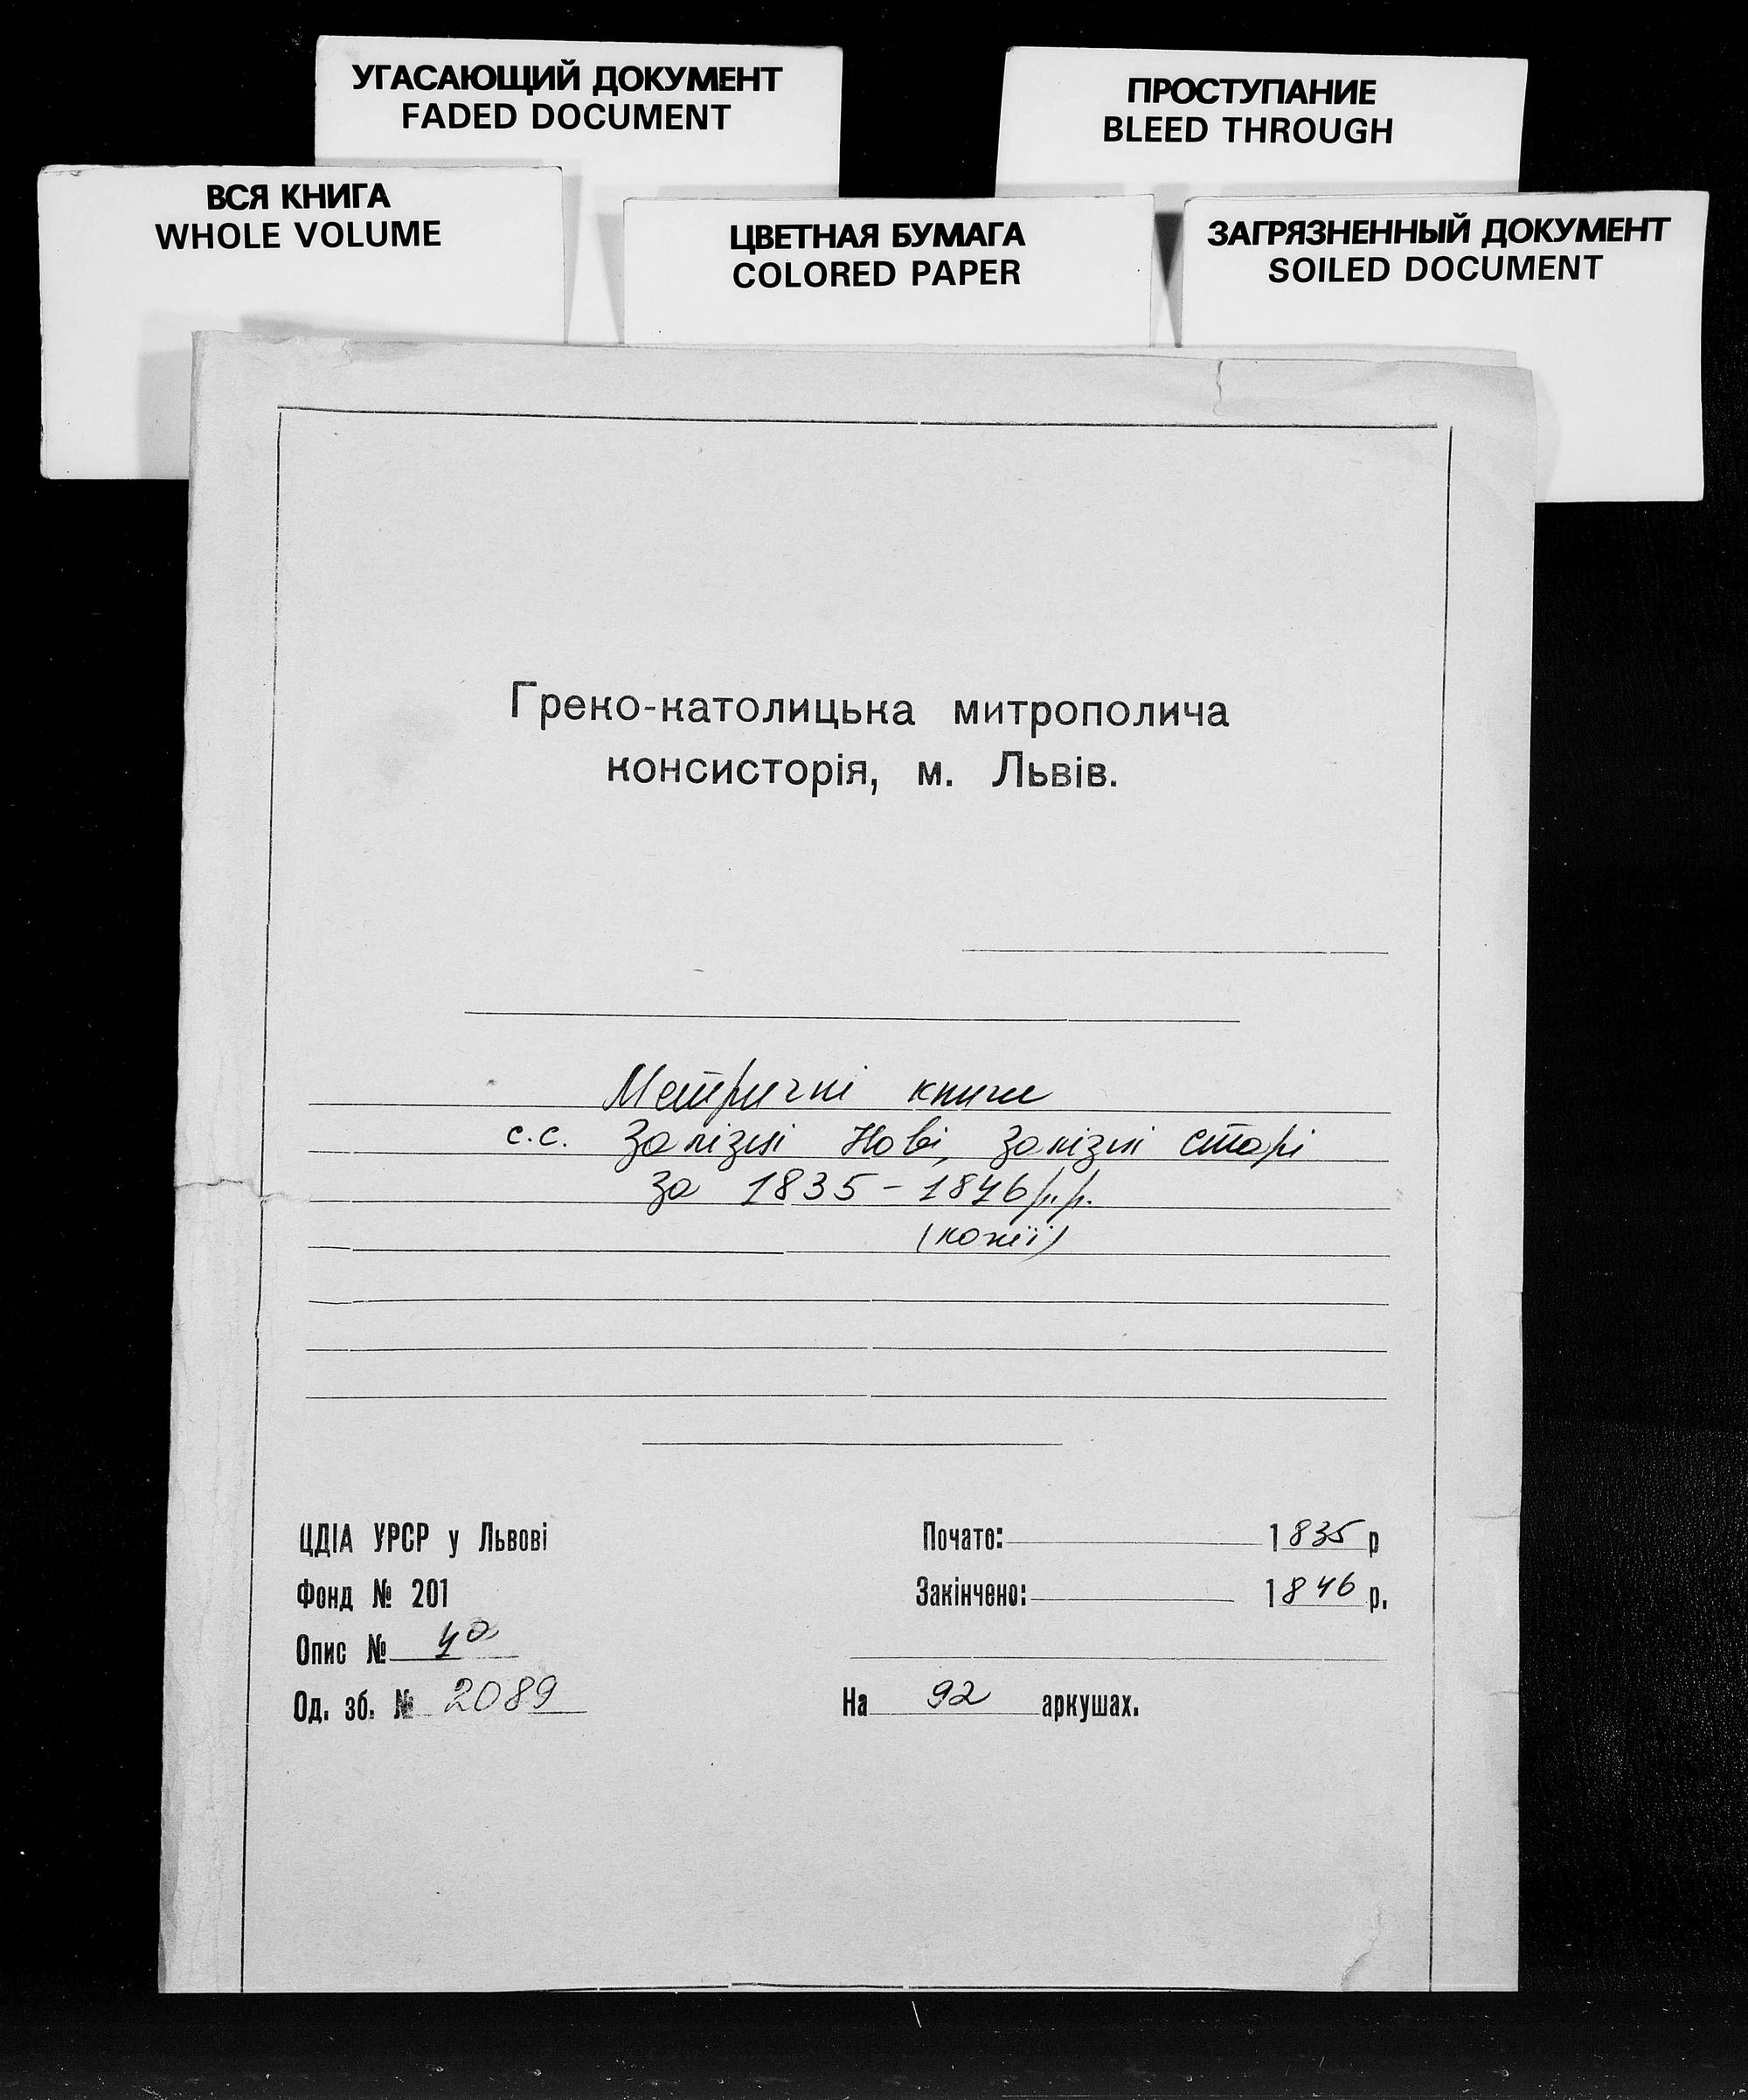 УГАСАЮЩИЙ ДОКУМЕНТ
FADED DOCUMENT
ПРОСТУПАНИЕ
BLEED THROUGH
ВСЯ КНИГА
WHOLE VOLUME
ЦВЕТНАЯ БУМАГА
COLORED PAPER
ЗАГРЯЗНЕННЫЙ ДОКУМЕНТ
SOILED DOCUMENT
Греко-католицька митрополича
консисторія, м. Львів.
Метричні книги
с.с. Залізці Нові, Залізці Старі
за 1835-1846 р.р.
(копії)
ЦДІА УРСР у Львові
Фонд № 201
Опис № 4а
Од. зб. № 2089
Почато: 1835 р
Закінчено: 1846 р.
На 92 аркушах.